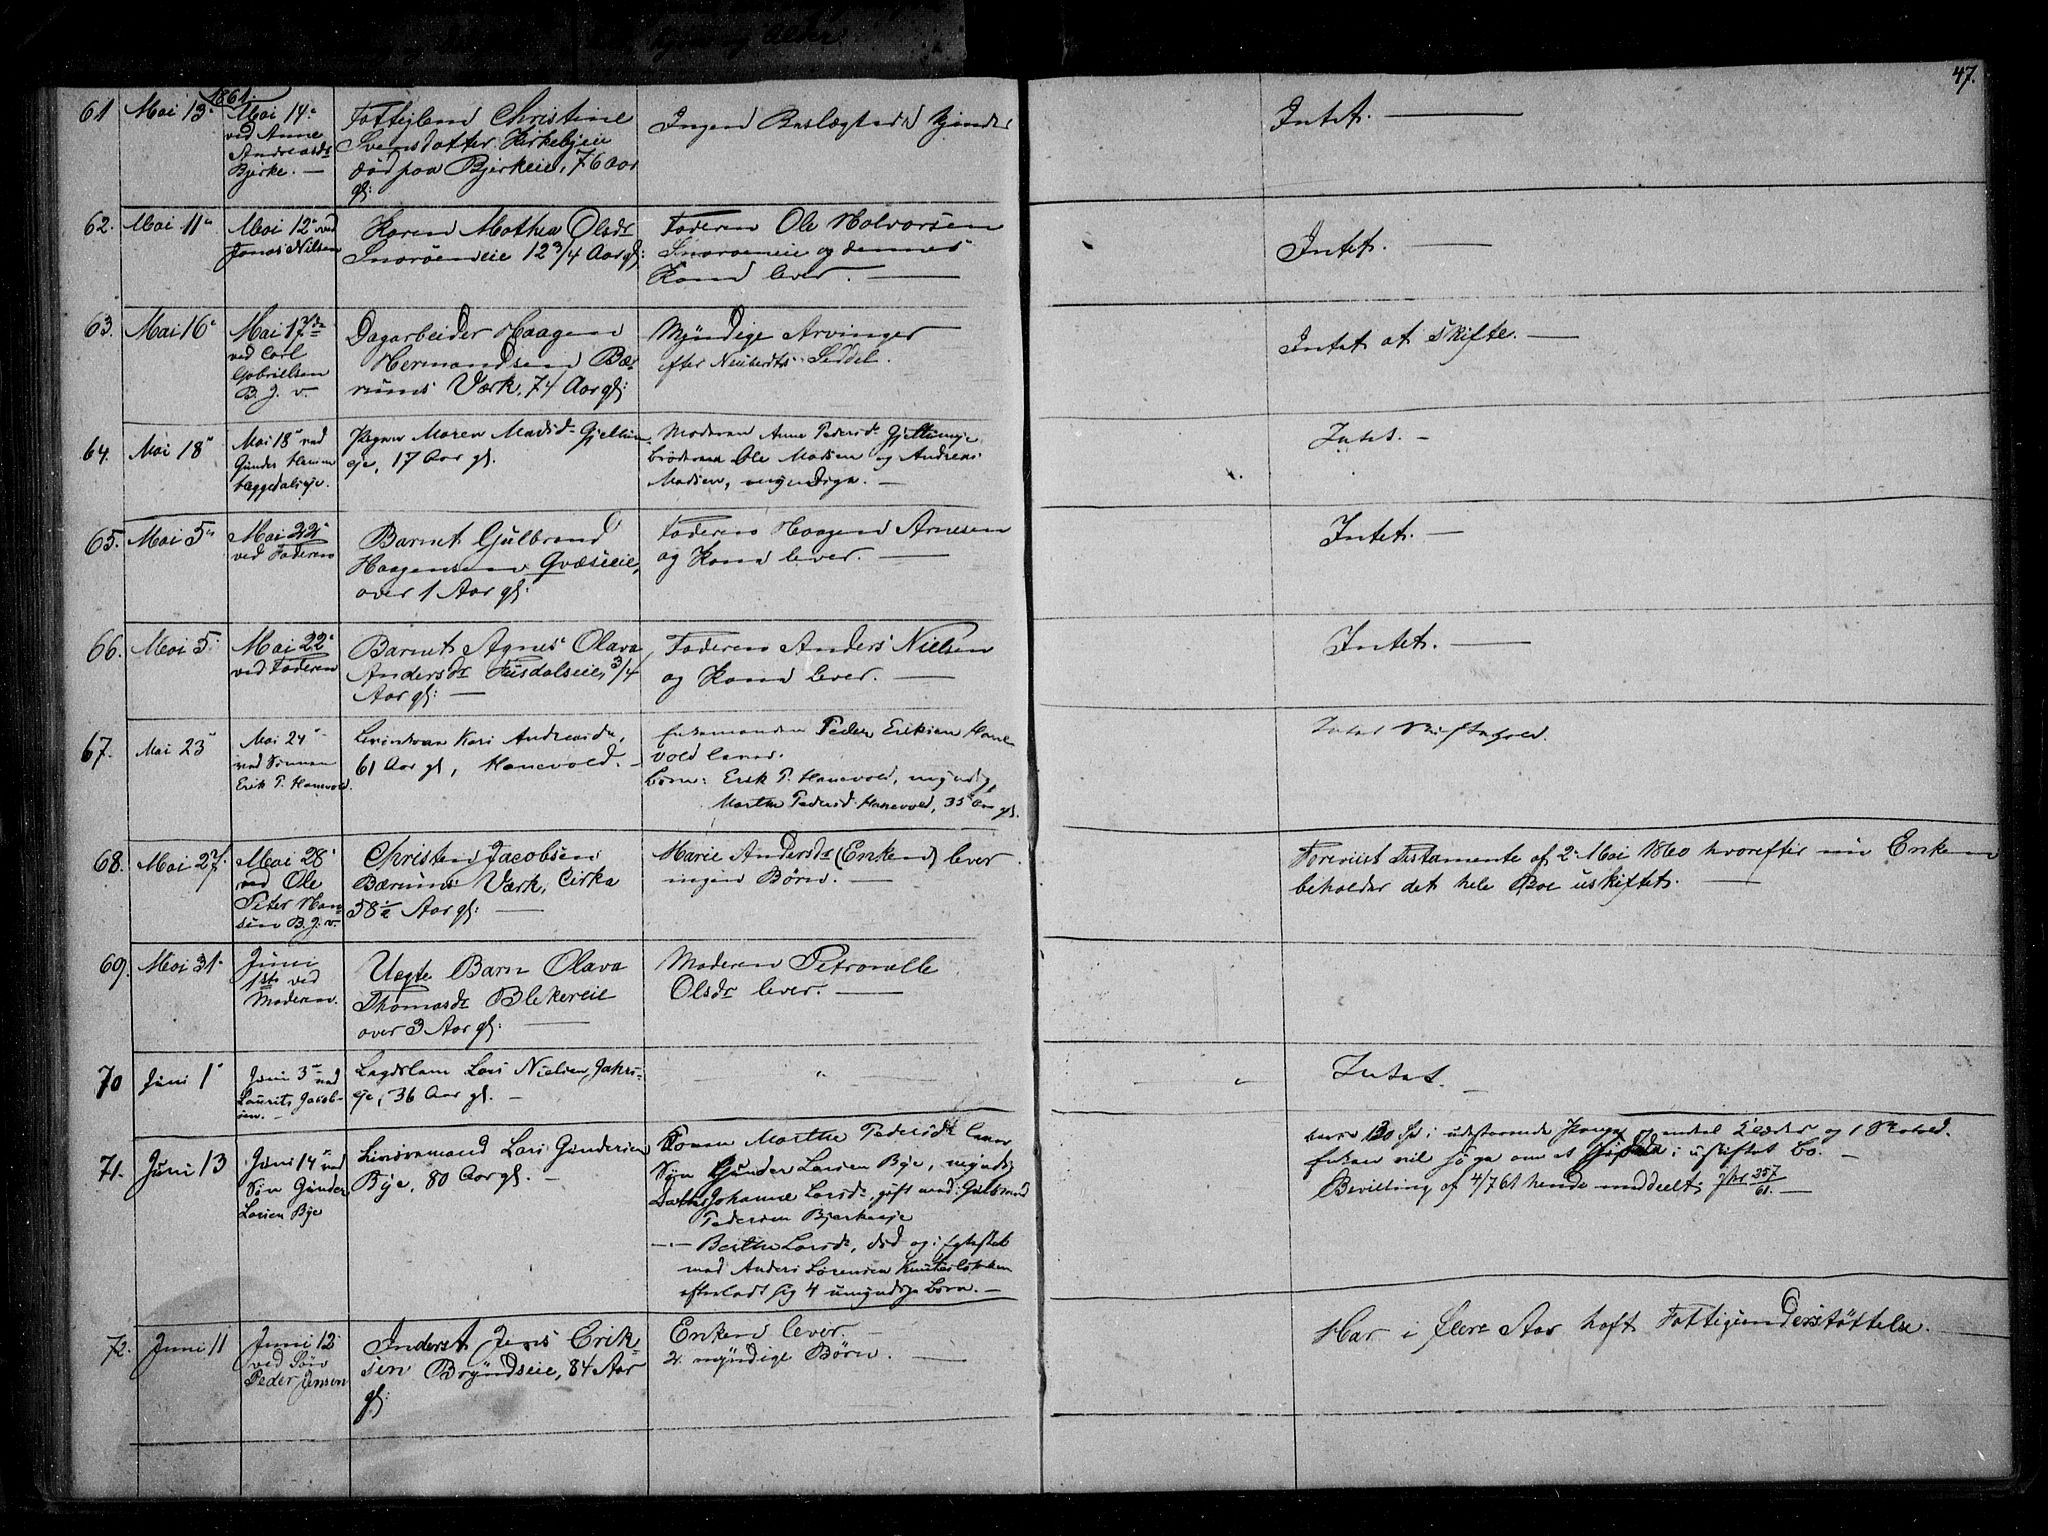 47.
1861.
61
Mai 13
Mai 14
ved Anne
Andreasdr
Bjerke. —
Fattiglem Christine
Svensdatter Kirkebyeie
død paa Bjerkeie, 76 Aar
gl:
Ingen Beslægtede
Intet. —
62.
Mai 11
Mai 12 ved
Jonas Nilsen
Karen Mathea Olsdr
Snarøeneie 12 3/4 Aar gl:
Faderen Ole Halvorsen
Snarøeneie og dennes
Kone lever. —
Intet. —
63.
Mai 16
Mai 17de
ved Carl
Gabrielsen
B. J. v.
Dagarbeider Haagen
Hermandsen Bæ-
rums Værk, 74 Aar gl:
Myndige Arvinger
efter Neuberths Seddel.
Intet at skifte. —
64.
Mai 18
Mai 18 ved
Gunder Hansen
Bæggedalseje.
Pigen Maren Madsd. Gjettum-
eje, 17 Aar gl.
Moderen Anne Pedersd. Gjettumeje
brødrene Ole Madsen og Andreas
Madsen, myndige. —
Intet. —
65.
Mai 5
Mai 22
ved Faderen
Barnet Gulbrand
Haagensen Qvæseie,
over 1 Aar gl:
Faderen Haagen Arnesen
og Kone lever. —
Intet. —
66.
Mai 5
Mai 22
ved Faderen
Barnet Agnes Olava
Andersdr 3/4
Aar gl: —
Faderen Anders Nielsen
og Kone lever. —
Intet. —
67.
Mai 23
Mai 24
ved Sønnen
Erik P. Hanevold.
Kari Andreasdr,
61 Aar gl, Hanevold. —
Enkemanden Peder Eriksen Hane-
vold lever.
Børn: Erik P. Hanevold, myndig
Marthe Pedersd. Hanevold, 35 Aar gl.
Intet
68.
Mai 27.
Mai 28
ved Ole
Peter Han-
sen B. J. v.
Christen Jacobsen
Bærums Værk, Cirka
58 1/2 Aar gl: —
Marie Andersdr (Enken) lever
ingen Børn. —
Foreviist Testamente af 2 Mai 1860 hvorefter nu Enken
beholder det hele Boe uskiftet. —
69.
Mai 31
Juni
1ste ved
Moderen.
Uægte Barn Olava
Thomasdr Blekereie
over 3 Aar gl: —
Moderen Petronelle
Olsdr lever. —
70
Juni 1
Juni 3 ved
Laurits Jacob-
sen. —
Lægdslem Lars Nielsen, Jahrs-
eje, 36 Aar gl. —
"
"
Intet. —
71.
Juni 13
Juni 14 ved
Søn Gunder
Larsen Bye
Livøremand Lars Gundersen
Bye, 80 Aar gl. —
Konen Marthe Pedersdr lever
Søn Gunder Larsen Bye, myndig
Datter Johanne Larsdr, gift med Gulbrand
Pedersen Bjerkeeje
—"— Berthe Larsdr, død og i Egteskab
med Anders Sørensen
efterladt sig 4 umyndige børn. —
130 Spd i udestaaende Penge og endel Klæder og 1
Enken vil søge om at hensidde i uskiftet Bo. —
Bevilling af 4/7 61 hende meddelt, Jhr 357/61. —
72.
Juni 11
Juni 12
ved Søn
Peder Jensen
Inderst Jens Erik-
sen Bryndseie, 84 Aar
gl:
Enken lever. —
2 myndige Børn. —
Har i flere Aar haft Fattigunderstøttelse. —